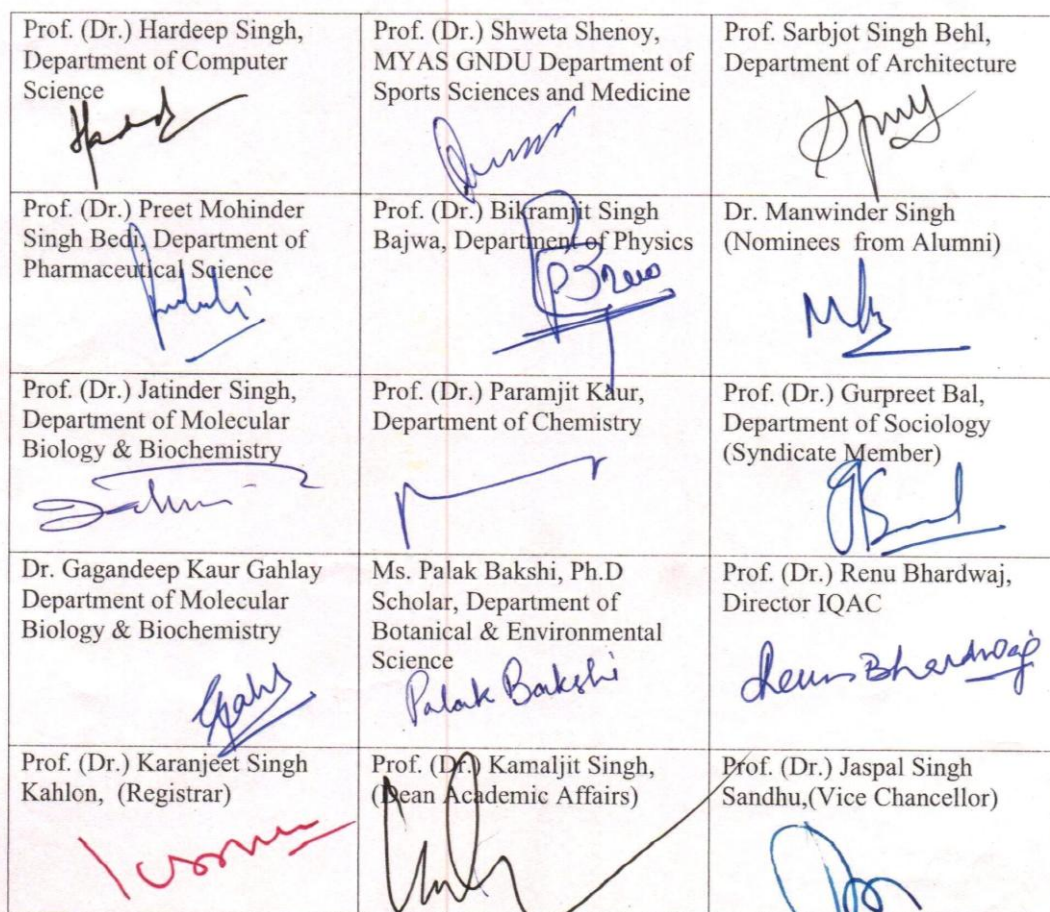 Prof. (Dr.) Hardeep Singh,
Department of Computer
Science
Prof. (Dr.) Shweta Shenoy,
MYAS GNDU Department of
Sports Sciences and Medicine
Prof. Sarbjot Singh Behl,
Department of Architecture
Prof. (Dr.) Preet Mohinder
Singh Bedi, Department of
Pharmaceutical Science
Prof. (Dr.) Bikramjit Singh
Bajwa, Department of Physics
Dr. Manwinder Singh
(Nominees from Alumni)
Prof. (Dr.) Jatinder Singh,
Department of Molecular
Biology & Biochemistry
Prof. (Dr.) Paramjit Kaur,
Department of Chemistry
Prof. (Dr.) Gurpreet Bal,
Department of Sociology
(Syndicate Member)
Dr. Gagandeep Kaur Gahlay
Department of Molecular
Biology & Biochemistry
Ms. Palak Bakshi, Ph.D
Scholar, Department of
Botanical & Environmental
Science
Palak Bakshi
Prof. (Dr.) Renu Bhardwaj,
Director IQAC
Renu Bhardwaj
Prof. (Dr.) Karanjeet Singh
Kahlon, (Registrar)
Prof. (Dr.) Kamaljit Singh,
(Dean Academic Affairs)
Prof. (Dr.) Jaspal Singh
Sandhu,(Vice Chancellor)